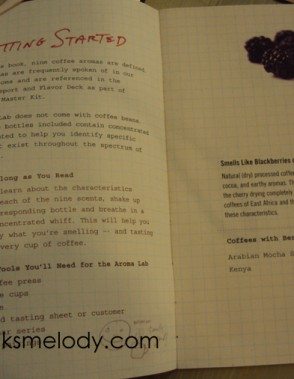 TTING STARTED
s book, nine coffee aromas are defined.
ab are frequently spoken of in our
oms and are referenced in the
sport and Flavor Deck as part of
Master Kit.
Lab does not come with coffee beans.
bottles included contain concentrated
nted to help you identify specific
t exist throughout the spectrum of
long as You Read
learn about the characteristics
each of the nine scents, shake up
responding bottle and breathe in a
ncentrated whiff. This will help you
y what you're smelling -- and tasting
very cup of coffee.
Tools You'll Need for the Aroma Lab
fee press
e cups
d tasting sheet or customer
er series
ksmelody.com
Smells Like Blackberries
Natural (dry) processed coffee
cocoa, and earthy aromas. Th
the cherry drying completely
coffees of East Africa and
these characteristics.
Coffees with Be
Arabian Mocha S
Kenya